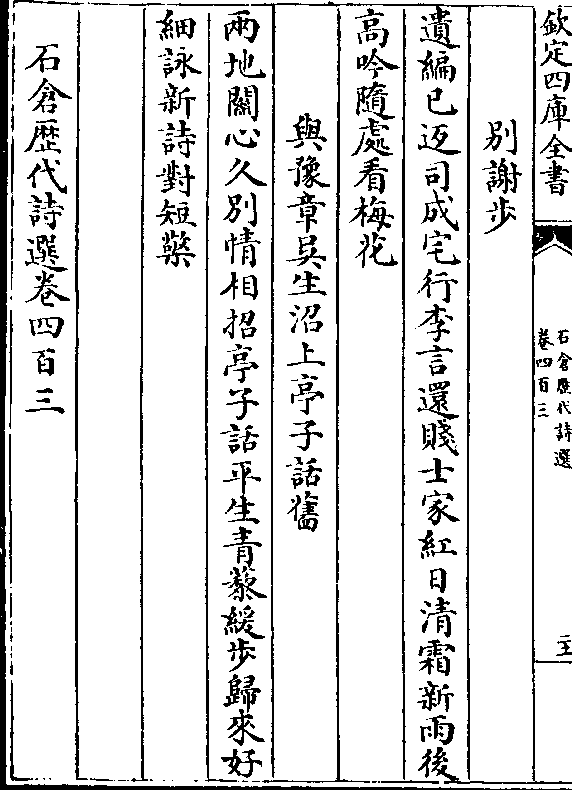 欽定四庫全書
石倉歴代詩選
卷四百三
別謝步
遺編已返司成宅行李言還賤士家紅日清霜新雨後
高吟隨處看梅花
與豫章吳生沼上亭子話舊
兩地關心久別情相招亭子話平生青藜緩步歸來好
細詠新詩對短檠
石倉歴代詩選卷四百三